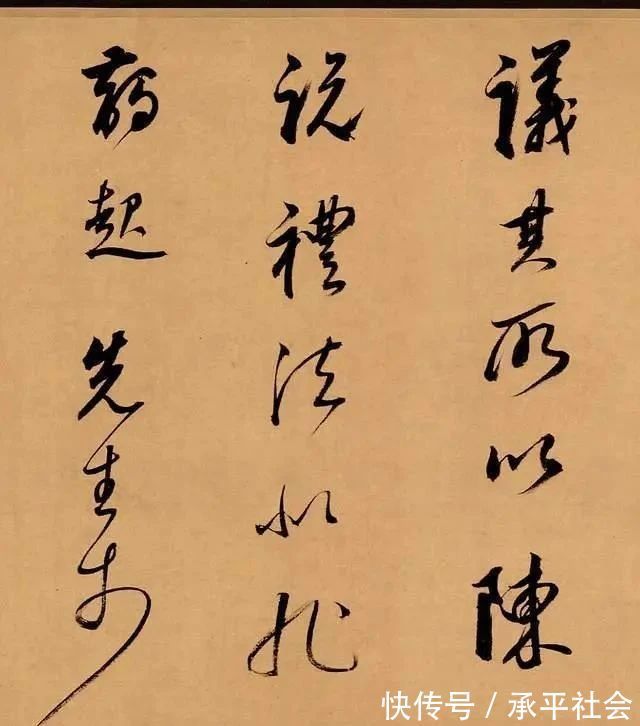 議其所以陳
說禮法是非
起先生於
快传号 / 承平社会